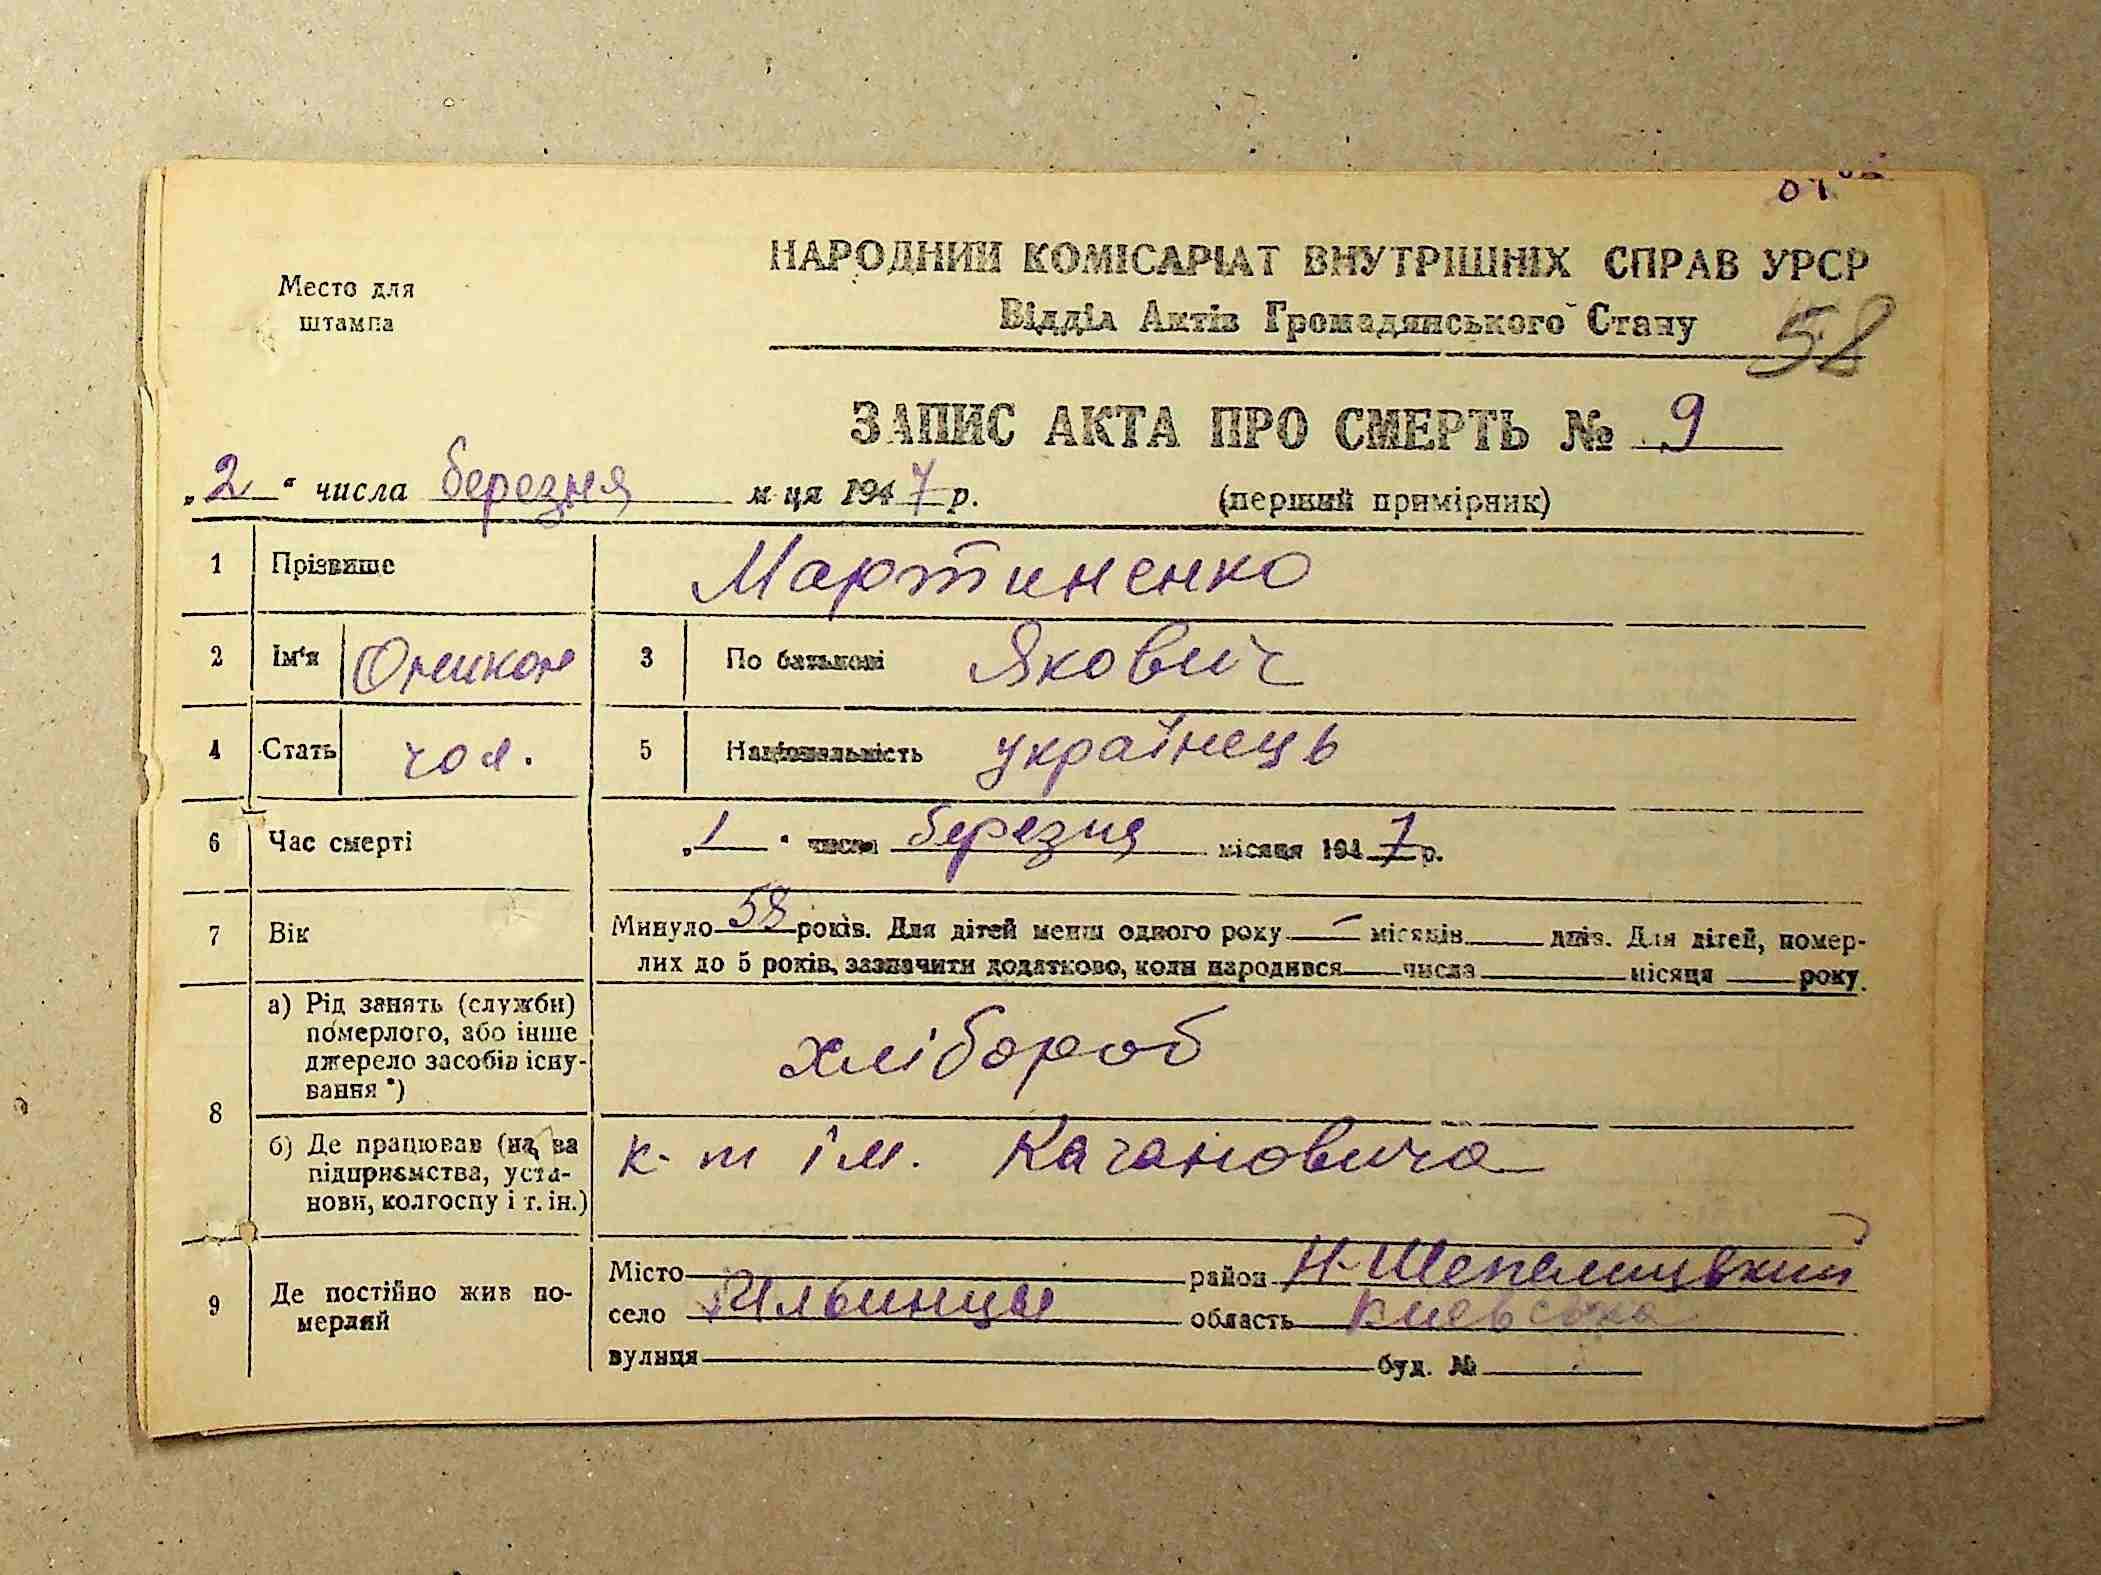 НАРОДНИЙ КОМІСАРІАТ ВНУТРІШНІХ СПРАВ УРСР
Место для
штампа
Відділ Актів Громадянського Стану
58
ЗАПИС АКТА ПРО СМЕРТЬ № 9
„2“ числа березня м-ця 1947 р. (перший примірник)
1 Прізвище Мартиненко
2 Ім'я Оникон 3 По батькові Якович
4 Стать чол. 5 Національність українець
6 Час смерті „1“ числа березня місяця 1947 р.
7 Вік Минуло 58 років. Для дітей менш одного року — місяців днів. Для дітей, помер-
лих до 5 років, зазначити додатково, коли народився числа місяця року
8 а) Рід занять (служби)
померлого, або інше
джерело засобів існу-
вання *) хлібороб
б) Де працював (назва
підприємства, уста-
нови, колгоспу і т. ін.) к-т ім. Кагановича
9 Де постійно жив по-
мерлий
Місто район Н-Шепелицький
село Ильинцы область Киевська
вулиця буд. №